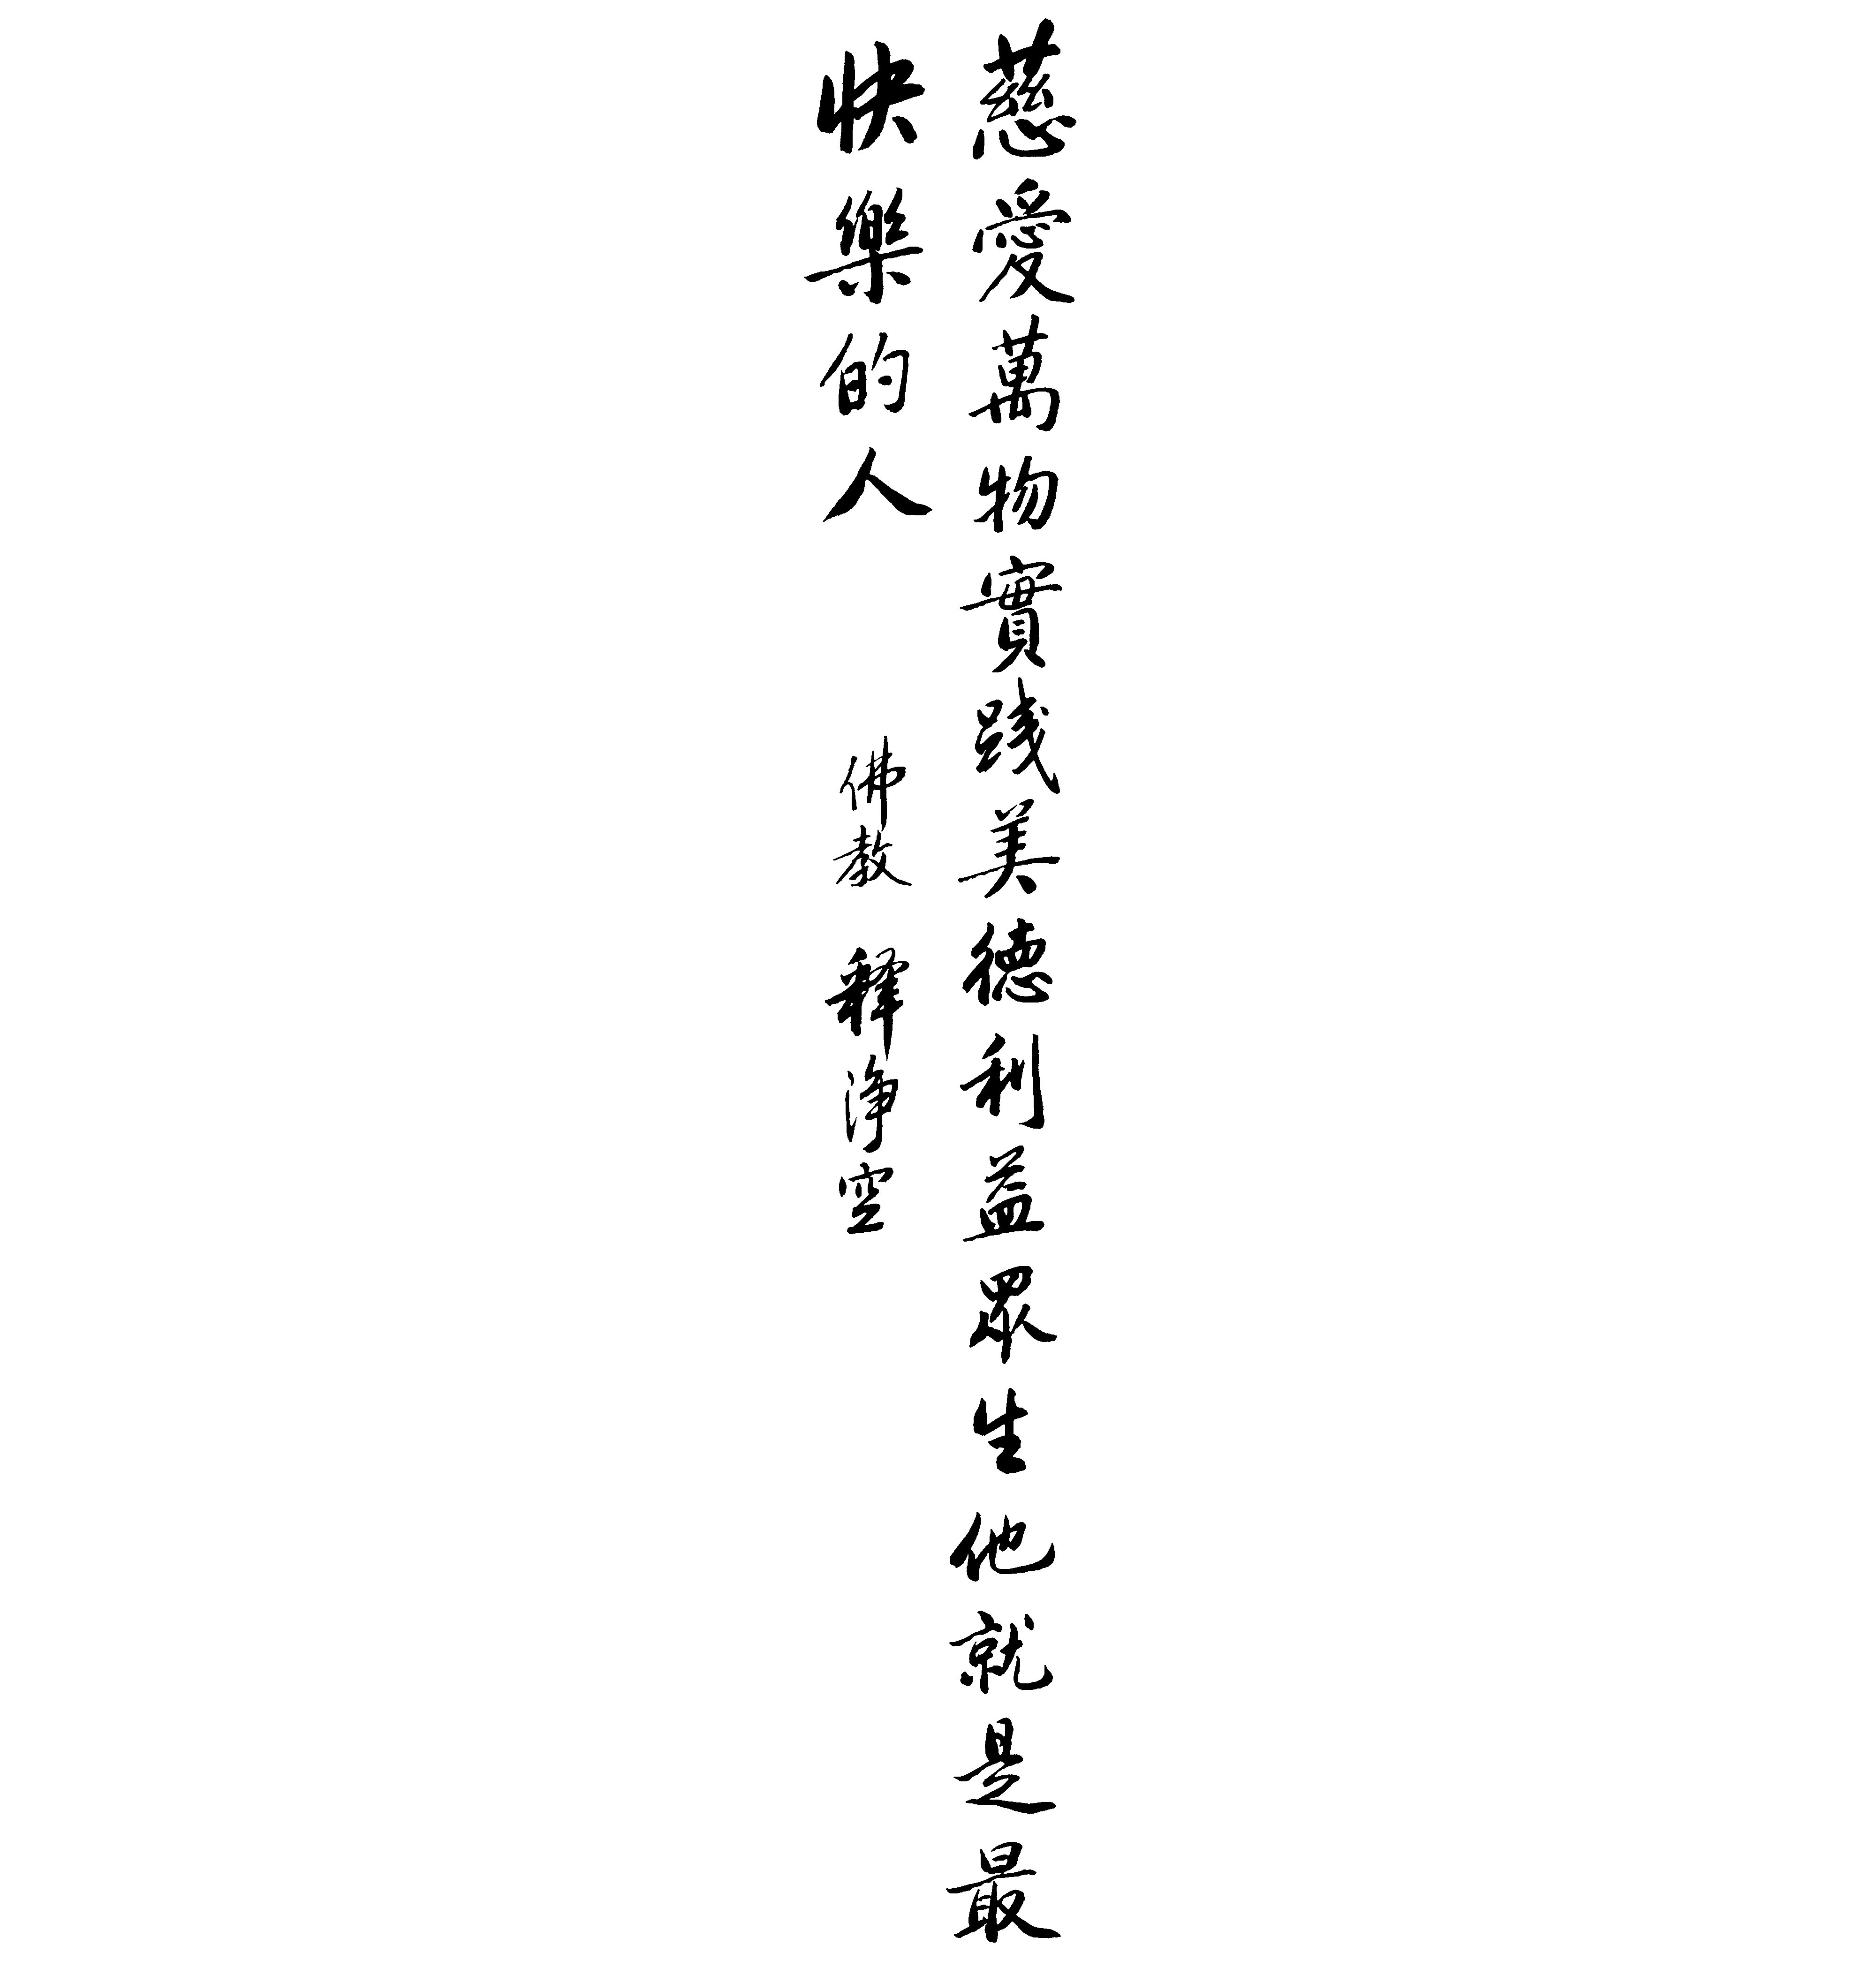 慈愛萬物實践美德利益眾生他就是最
快樂的人
佛教 釋淨空